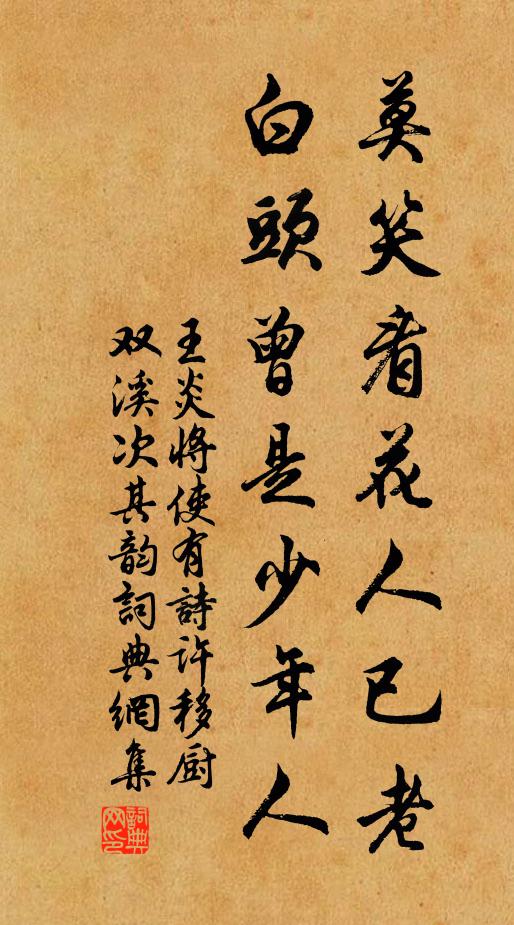 莫笑看花人已老
白頭曾是少年人
王炎將使有詩許移厨
双溪次其韵詞典網集
詞典
网印